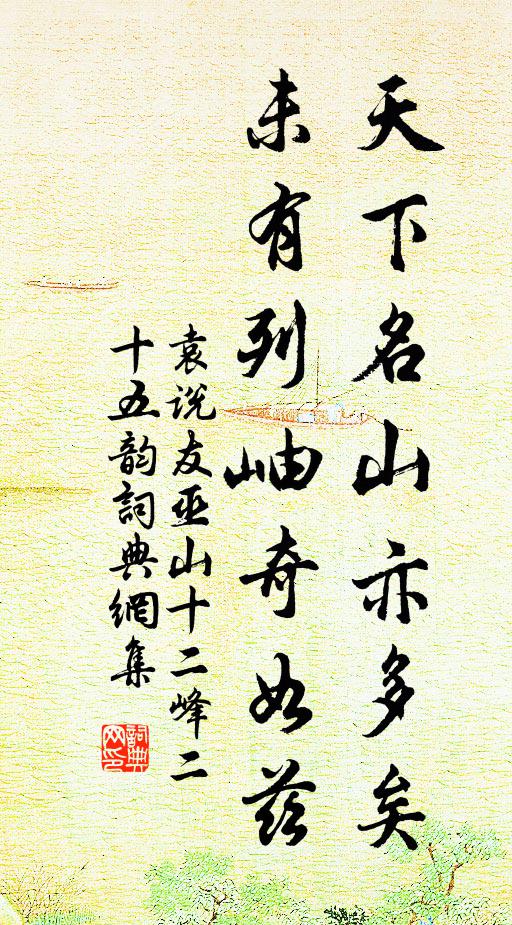 天下名山亦多矣
未有列岫奇如兹
袁说友巫山十二峰二
十五韵詞典網集
詞典
网印